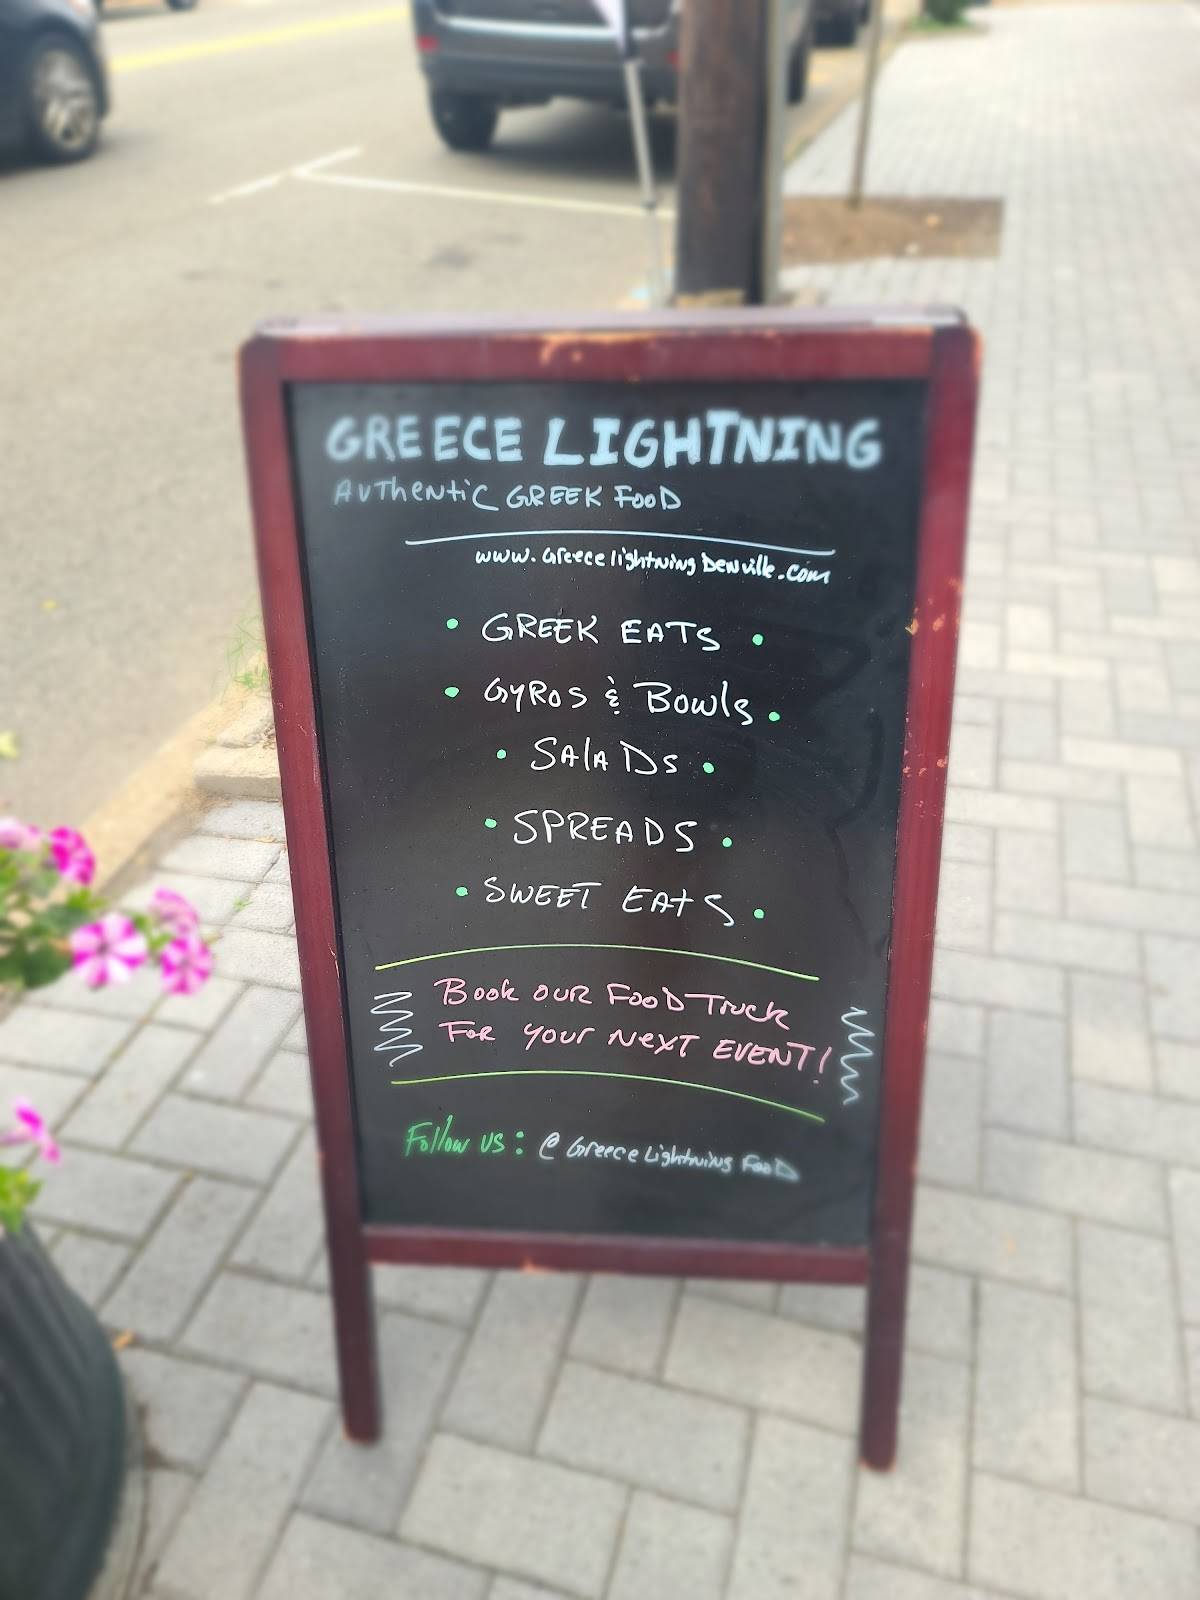 GREECE LIGHTNING
AUThentiC GREEK FooD
www.GreecelightningDenville.com
• GREEK EATS •
• GYROS & Bowls •
• SAlaDs •
• SPREADS •
• SWEET EAtS •
Book our FooD Truck
For Your NeXT EVENT!
Follow us: @GreeceLightningFooD